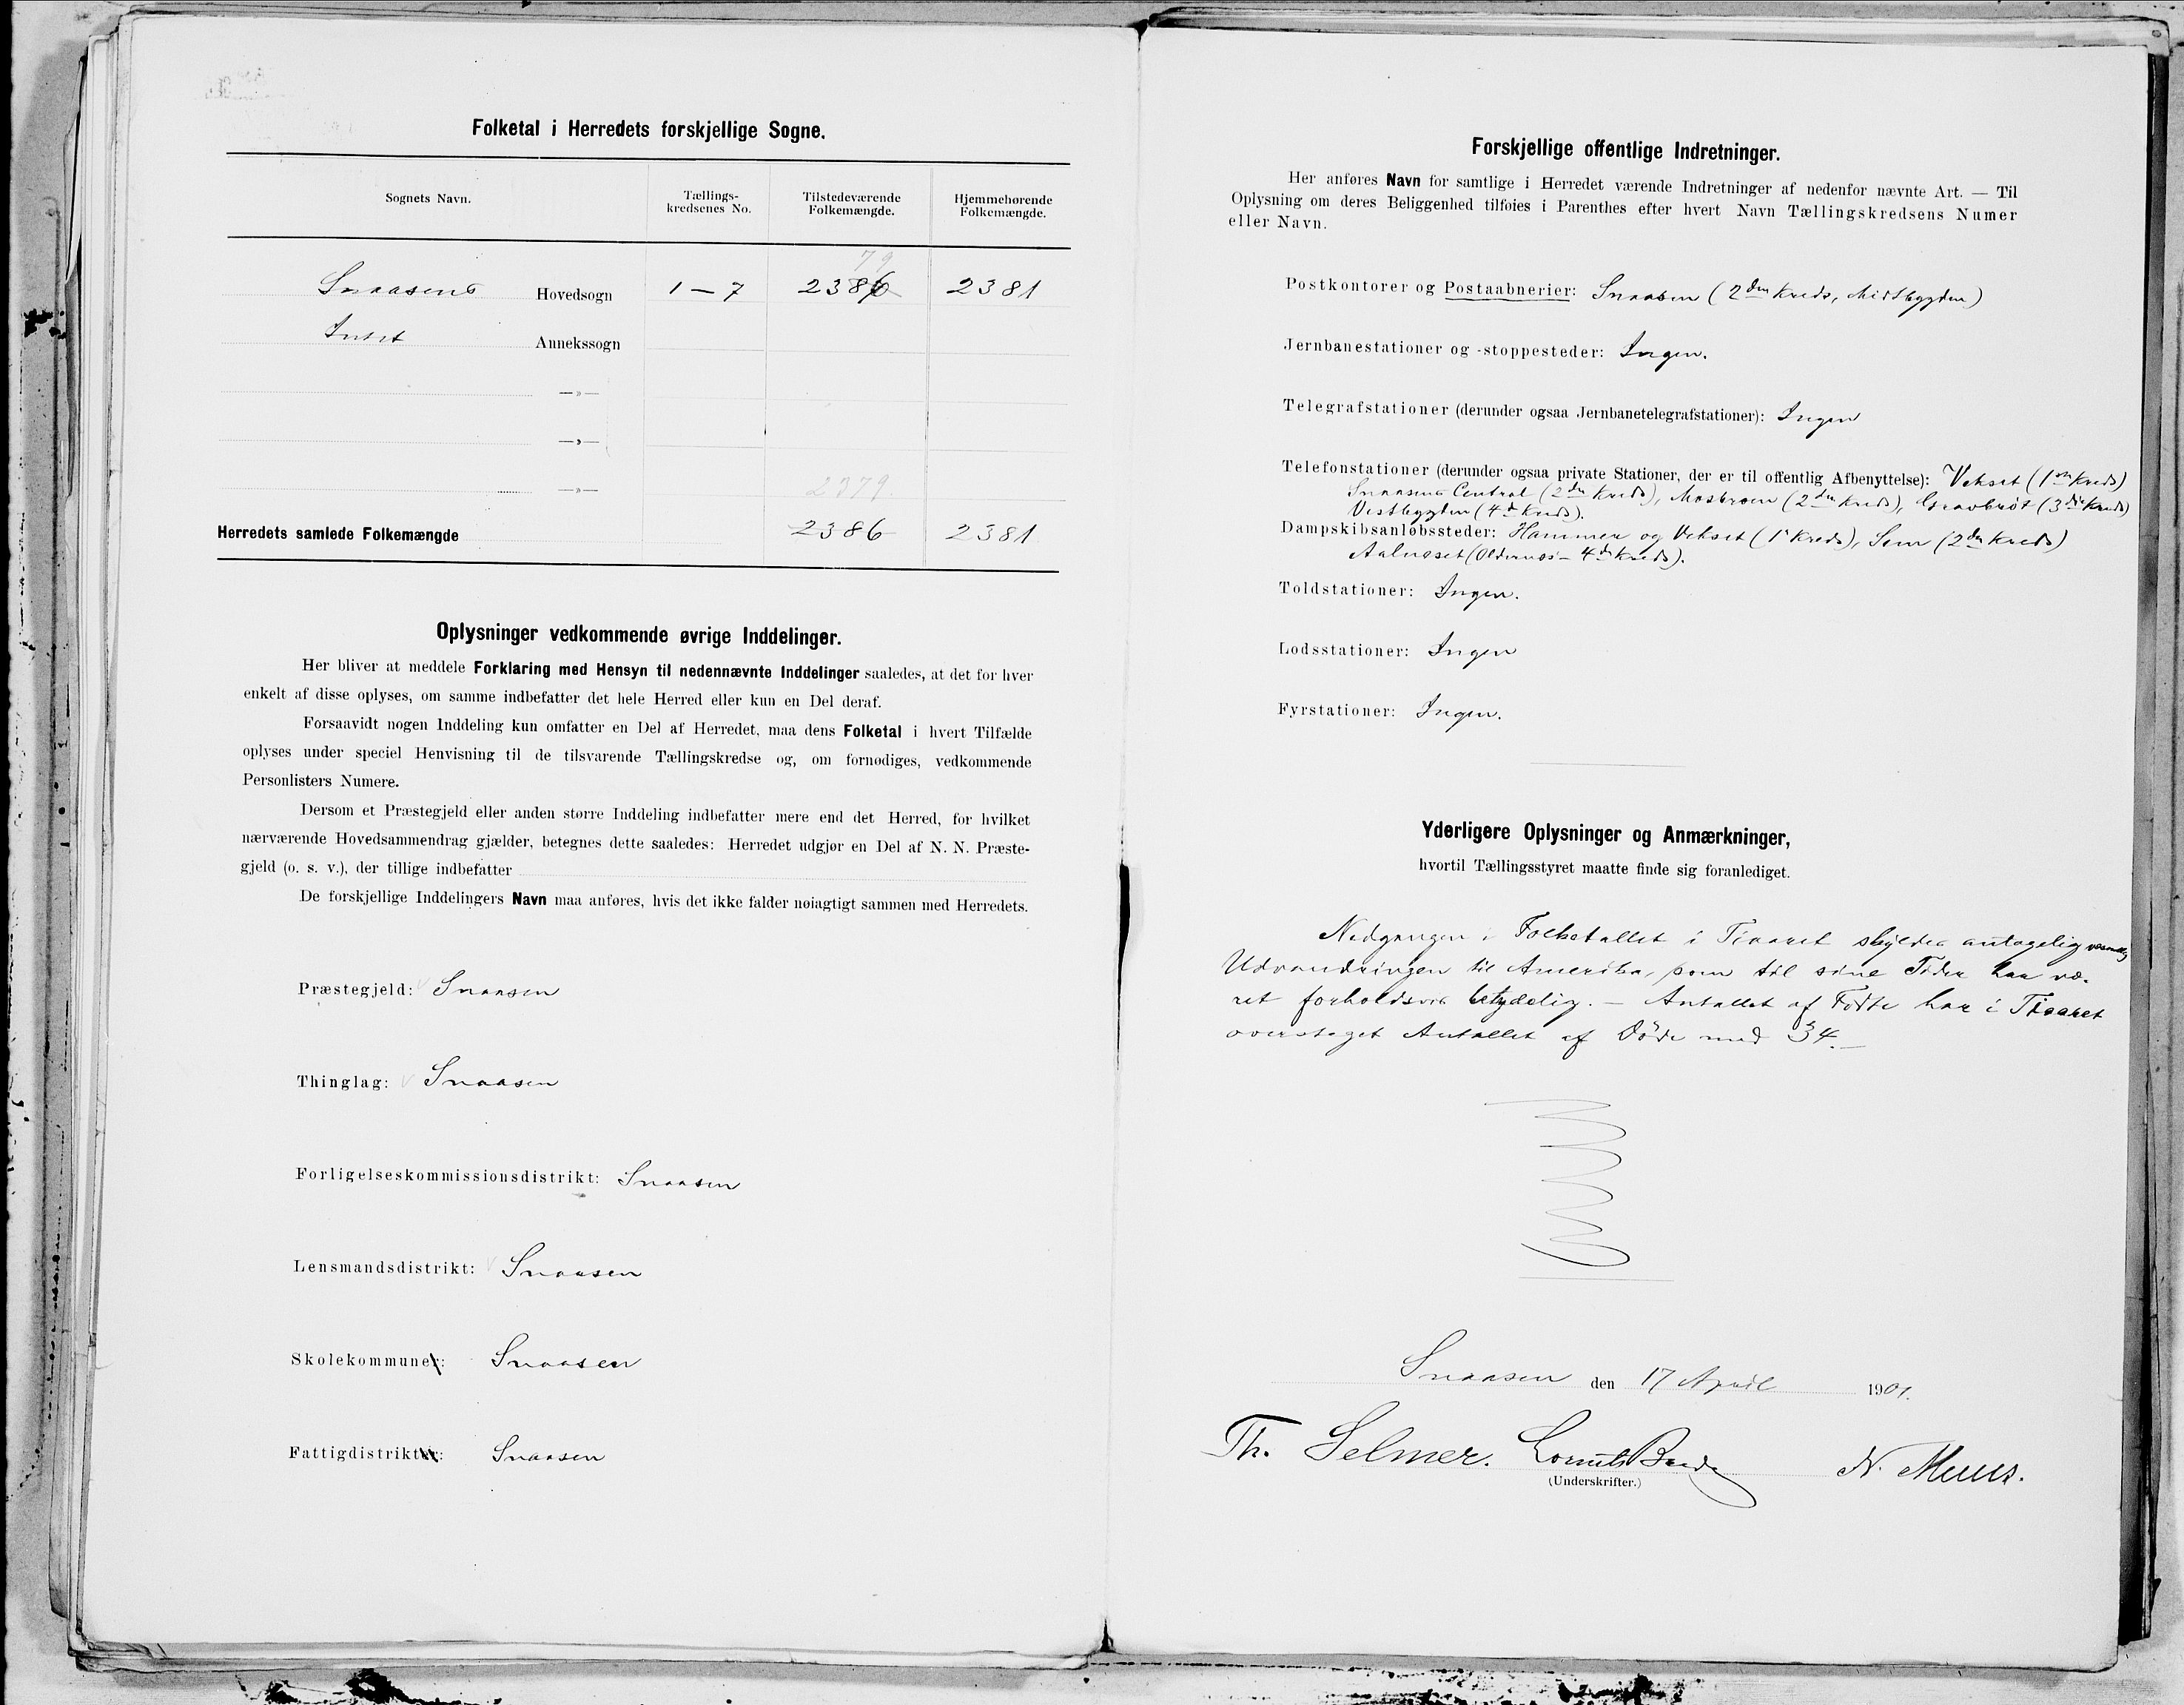 Folketal i Herredets forskjellige Sogne.
Sognets Navn.
Tællings-
kredsenes No.
Tilstedeværende
Folkemængde.
Hjemmehørende
Folkemængde.
79
Snaasens Hovedsogn 1 – 7 2386 2381
Annekssogn
—»—
—»—
—»— 2379.
Herredets samlede Folkemængde 2386 2381
Oplysninger vedkommende øvrige Inddelinger.
Her bliver at meddele Forklaring med Hensyn til nedennævnte Inddelinger saaledes, at det for hver
enkelt af disse oplyses, om samme indbefatter det hele Herred eller kun en Del deraf.
Forsaavidt nogen Inddeling kun omfatter en Del af Herredet, maa dens Folketal i hvert Tilfælde
oplyses under speciel Henvisning til de tilsvarende Tællingskredse og, om fornødiges, vedkommende
Personlisters Numere.
Dersom et Præstegjeld eller anden større Inddeling indbefatter mere end det Herred, for hvilket
nærværende Hovedsammendrag gjælder, betegnes dette saaledes: Herredet udgjør en Del af N. N. Præste-
gjeld (o. s. v.), der tillige indbefatter
De forskjellige Inddelingers Navn maa anføres, hvis det ikke falder nøiagtigt sammen med Herredets.
Præstegjeld: Snaasen
Thinglag: Snaasen
Forligelseskommissionsdistrikt: Snaasen
Lensmandsdistrikt: Snaasen
Skolekommuner: Snaasen
Fattigdistrikter: Snaasen
Forskjellige offentlige Indretninger.
Her anføres Navn for samtlige i Herredet værende Indretninger af nedenfor nævnte Art. — Til
Oplysning om deres Beliggenhed tilføies i Parenthes efter hvert Navn Tællingskredsens Numer
eller Navn.
Postkontorer og Postaabnerier: Snaasen (2den Kreds, Midtbygden)
Jernbanestationer og -stoppesteder: Ingen.
Telegrafstationer (derunder ogsaa Jernbanetelegrafstationer): Ingen
Telefonstationer (derunder ogsaa private Stationer, der er til offentlig Afbenyttelse): Vekset (1ste Kreds)
Snaasens Central (2den Kreds), Mosbroen (2den Kreds), (3die Kreds)
Vestbygden (4de Kreds).
Dampskibsanløbssteder: Hammer og Vekset (1ste Kreds), Sem (2den Kreds)
(4de Kreds).
Toldstationer: Ingen.
Lodsstationer: Ingen
Fyrstationer: Ingen.
Yderligere Oplysninger og Anmærkninger,
hvortil Tællingsstyret maatte finde sig foranlediget.
Nedgangen i Folketallet i Tiaaret skyldes antagelig væsentlig
Udvandringen til Amerika, som til sine Tider har væ-
ret forholdsvis betydelig. — Antallet af Fødte har i Tiaaret
oversteget Antallet af Døde med 34.—
Snaasen den 17 April 1901.
Th. Selmer. N. Muus.
(Underskrifter.)